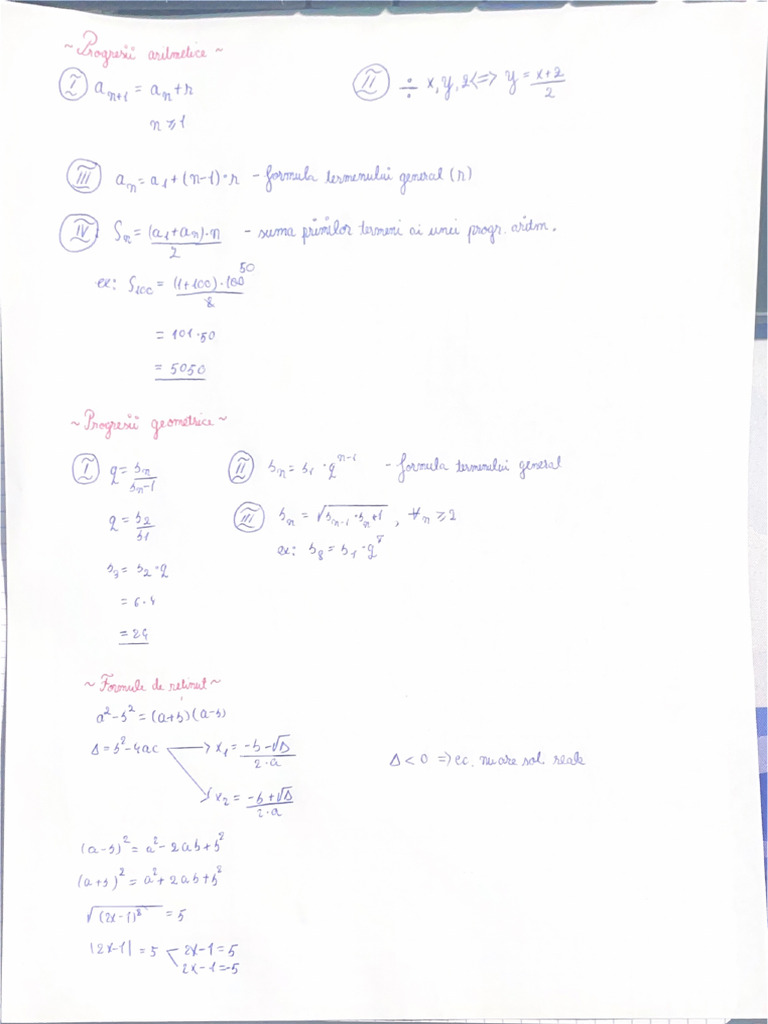 ~ Progresii aritmetice ~
I a_{n+1} = a_n + r
n ⩾ 1
II ÷ x, y, z <=> y = \frac{x+z}{2}
III a_n = a_1 + (n-1) · r - formula termenului general (n)
IV S_n = \frac{(a_1 + a_n) · n}{2} - suma primilor termeni ai unei progr. aritm.
ex: S_{100} = \frac{(1+100) · 100}{2} 50
= 101 · 50
= 5050
~ Progresii geometrice ~
I q = \frac{b_n}{b_n-1}
q = \frac{b_2}{b_1}
b_3 = b_2 · q
= 6 · 4
= 24
II b_n = b_1 · q^{n-1} - formula termenului general
III b_n = \sqrt{b_{n-1} · b_n+1}, ∀n ⩾ 2
ex: b_8 = b_1 · q^7
~ Formule de reținut ~
a^2 - b^2 = (a+b)(a-b)
Δ = b^2 - 4ac → x_1 = \frac{-b-\sqrt{Δ}}{2·a}
→ x_2 = \frac{-b+\sqrt{Δ}}{2·a}
Δ < 0 => ec. nu are sol. reale
(a-b)^2 = a^2 - 2ab + b^2
(a+b)^2 = a^2 + 2ab + b^2
\sqrt{(2x-1)^2} = 5
|2x-1| = 5 < 2x-1 = 5
2x-1 = -5